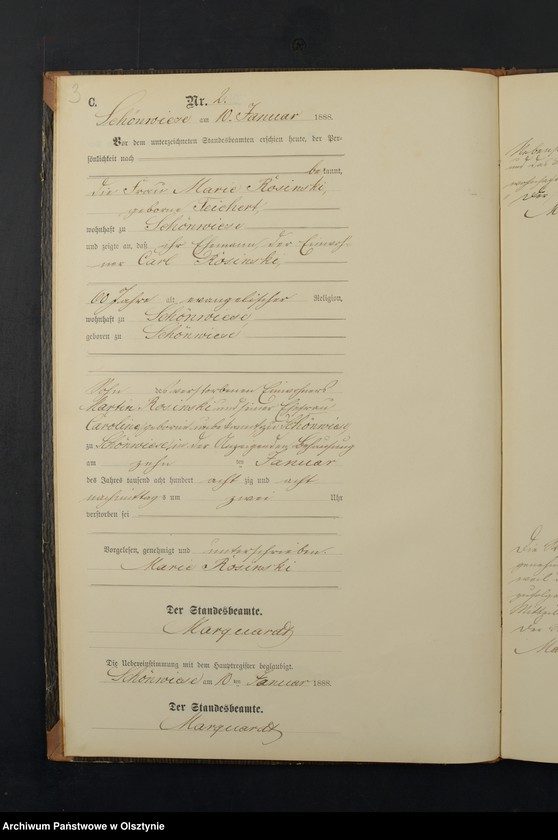 3
C. Nr. 2.
Schönwiese am 10. Januar 1888.
Vor dem unterzeichneten Standesbeamten erschien heute, der Per-
sönlichkeit nach
bekannt,
die Frau Marie Rosinski,
geborne Teichert,
wohnhaft zu Schönwiese
und zeigte an, daß ihr Ehemann, der Einwoh-
ner Carl Rosinski,
60 Jahre alt, evangelischer Religion,
wohnhaft zu Schönwiese
geboren zu Schönwiese
Sohn des verstorbenen Einwohners
Martin Rosinski und seiner Ehefrau
Caroline, geborene unbekannt zu Schönwiese
zu Schönwiese, in der Anzeigenden Behausung
am zehn ten Januar
des Jahres tausend acht hundert acht zig und acht
nachmittags um zwei Uhr
verstorben sei
Vorgelesen, genehmigt und unterschrieben
Marie Rosinski
Der Standesbeamte.
Marquardt
Die Uebereinstimmung mit dem Hauptregister beglaubigt.
Schönwiese am 10 ten Januar 1888.
Der Standesbeamte.
Marquardt
Archiwum Państwowe w Olsztynie